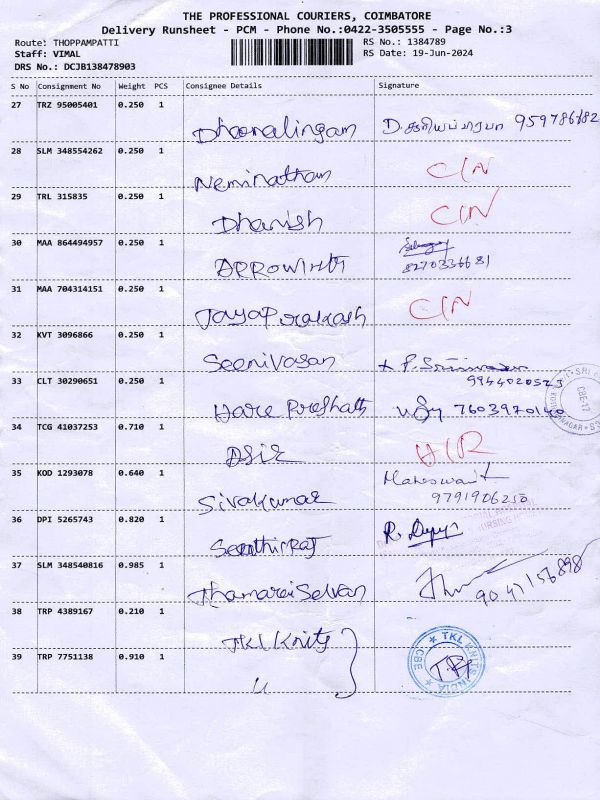 THE PROFESSIONAL COURIERS, COIMBATORE
Delivery Runsheet - PCM - Phone No.:0422-3505555 - Page No.:3
Route: THOPPAMPATTI RS No.: 1384789
Staff: VIMAL RS Date: 19-Jun-2024
DRS No.: DCJB138478903
S No Consignment No Weight PCS Consignee Details Signature
27 TRZ 95005401 0.250 1
Dharmalingam
28 SLM 348554262 0.250 1
Neminathan C/N
29 TRL 315835 0.250 1
Dhanish C/N
30 MAA 864494957 0.250 1
8270336681
31 MAA 704314151 0.250 1
Jayaprakash C/N
32 KVT 3096866 0.250 1
Seenivasan
9944020523
33 CLT 30290651 0.250 1
Hare Preshath 7603970140
34 TCG 41037253 0.710 1
DSIR
35 KOD 1293078 0.640 1
Sivakumar
9791906250
36 DPI 5265743 0.820 1
Senthirraj
37 SLM 348540816 0.985 1
Thamarai Selvan
9047156898
38 TRP 4389167 0.210 1
TKL Knits
39 TRP 7751138 0.910 1
"
TKL KNITS INDIA
CBE